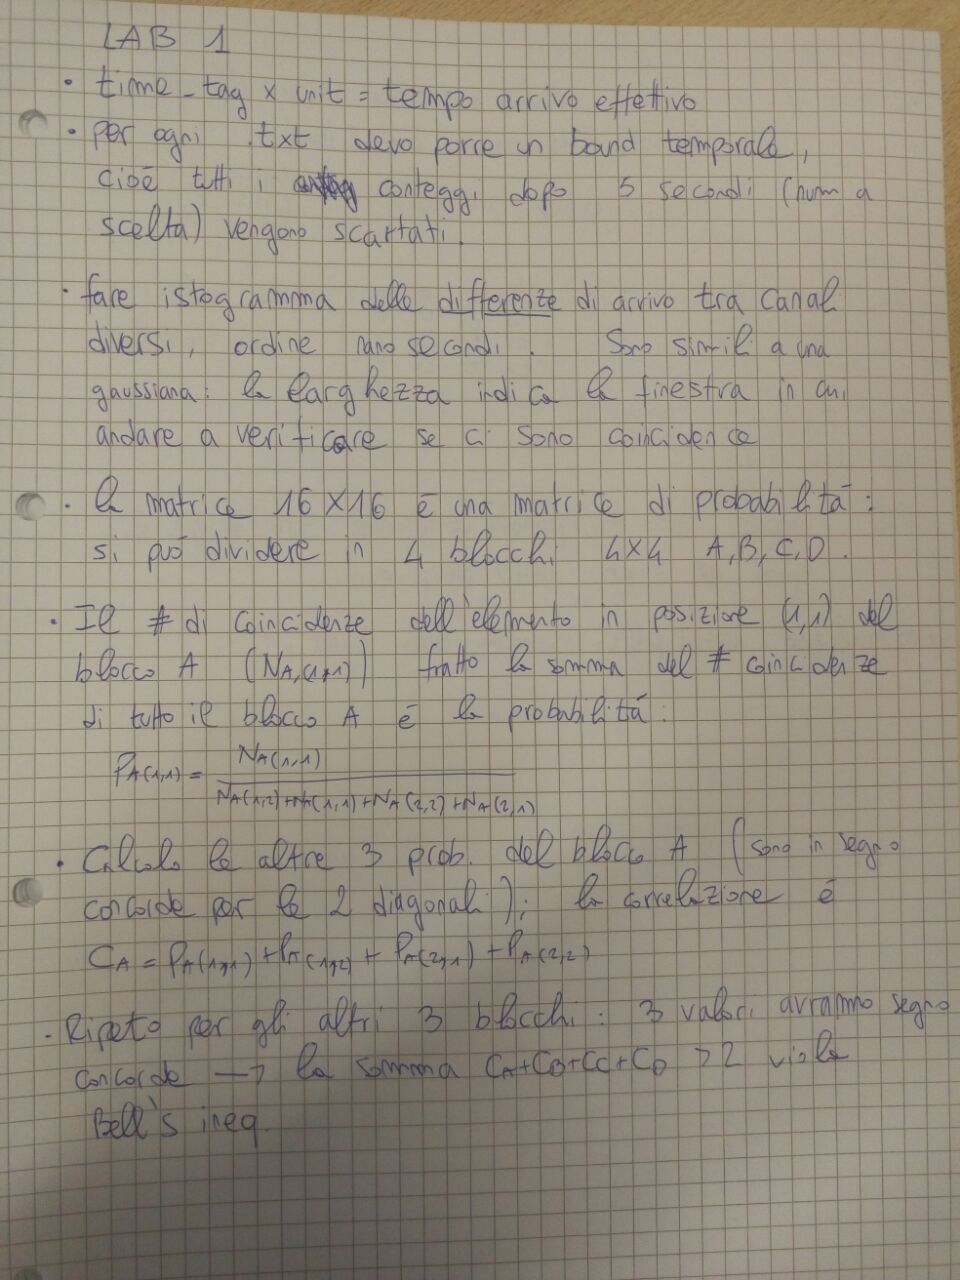 LAB 1
• time_tag x unit = tempo arrivo effettivo
• per ogni .txt devo porre un bound temporale,
cioè tutti i conteggi dopo 5 secondi (num a
scelta) vengono scartati.
• fare istogramma delle differenze di arrivo tra canali
diversi, ordine nanosecondi. Sono simili a una
gaussiana: la larghezza indica la finestra in cui
andare a verificare se ci sono coincidence
• la matrice 16x16 è una matrice di probabilità:
si può dividere in 4 blocchi 4x4 A,B,C,D.
• Il # di coincidenze dell'elemento in posizione (1,1) del
blocco A (NA,(1,1)) fratto la somma del # coincidenze
di tutto il blocco A è la probabilità:
PA(1,1) = NA(1,1)
NA(1,2)+NA(1,1)+NA(2,2)+NA(2,1)
• Calcolo le altre 3 prob. del blocco A (sono in segno
concorde per le 2 diagonali); la correlazione è
CA = PA(1,1) + PA(1,2) + PA(2,1) + PA(2,2)
• Ripeto per gli altri 3 blocchi: 3 valori avranno segno
concorde → la somma CA+CB+CC+CD >2 viola
Bell's ineq.